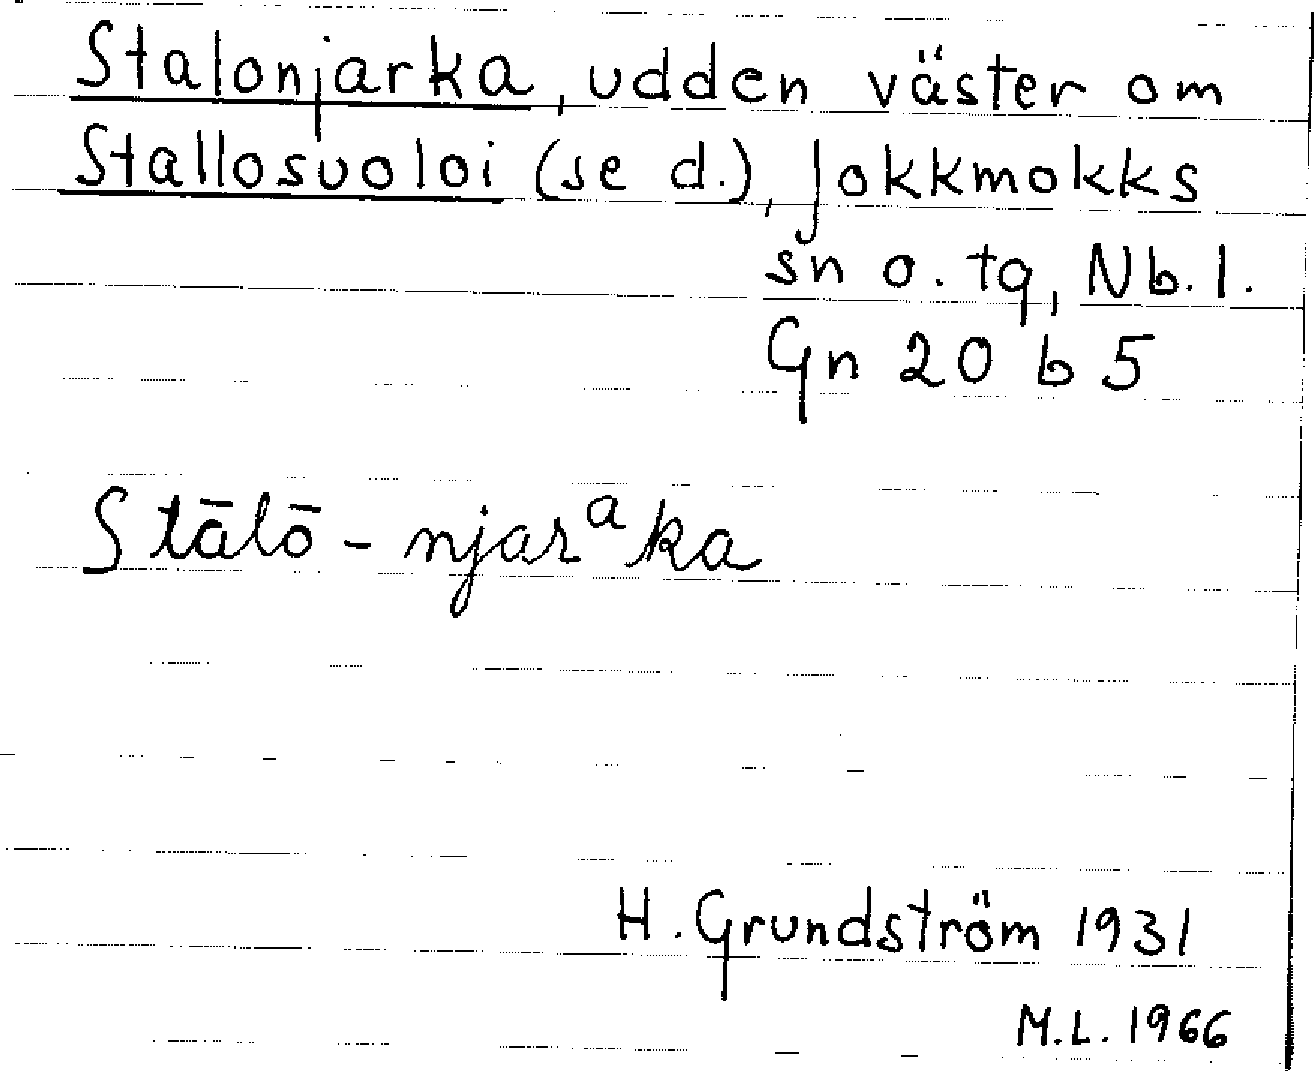 Stalonjarka, udden väster om
Stallosuoloi (se d.), Jokkmokks
sn o. tg, Nb. l.
Gn 20 b 5
Stālō - njarᵃka
H. Grundström 1931
M.L. 1966